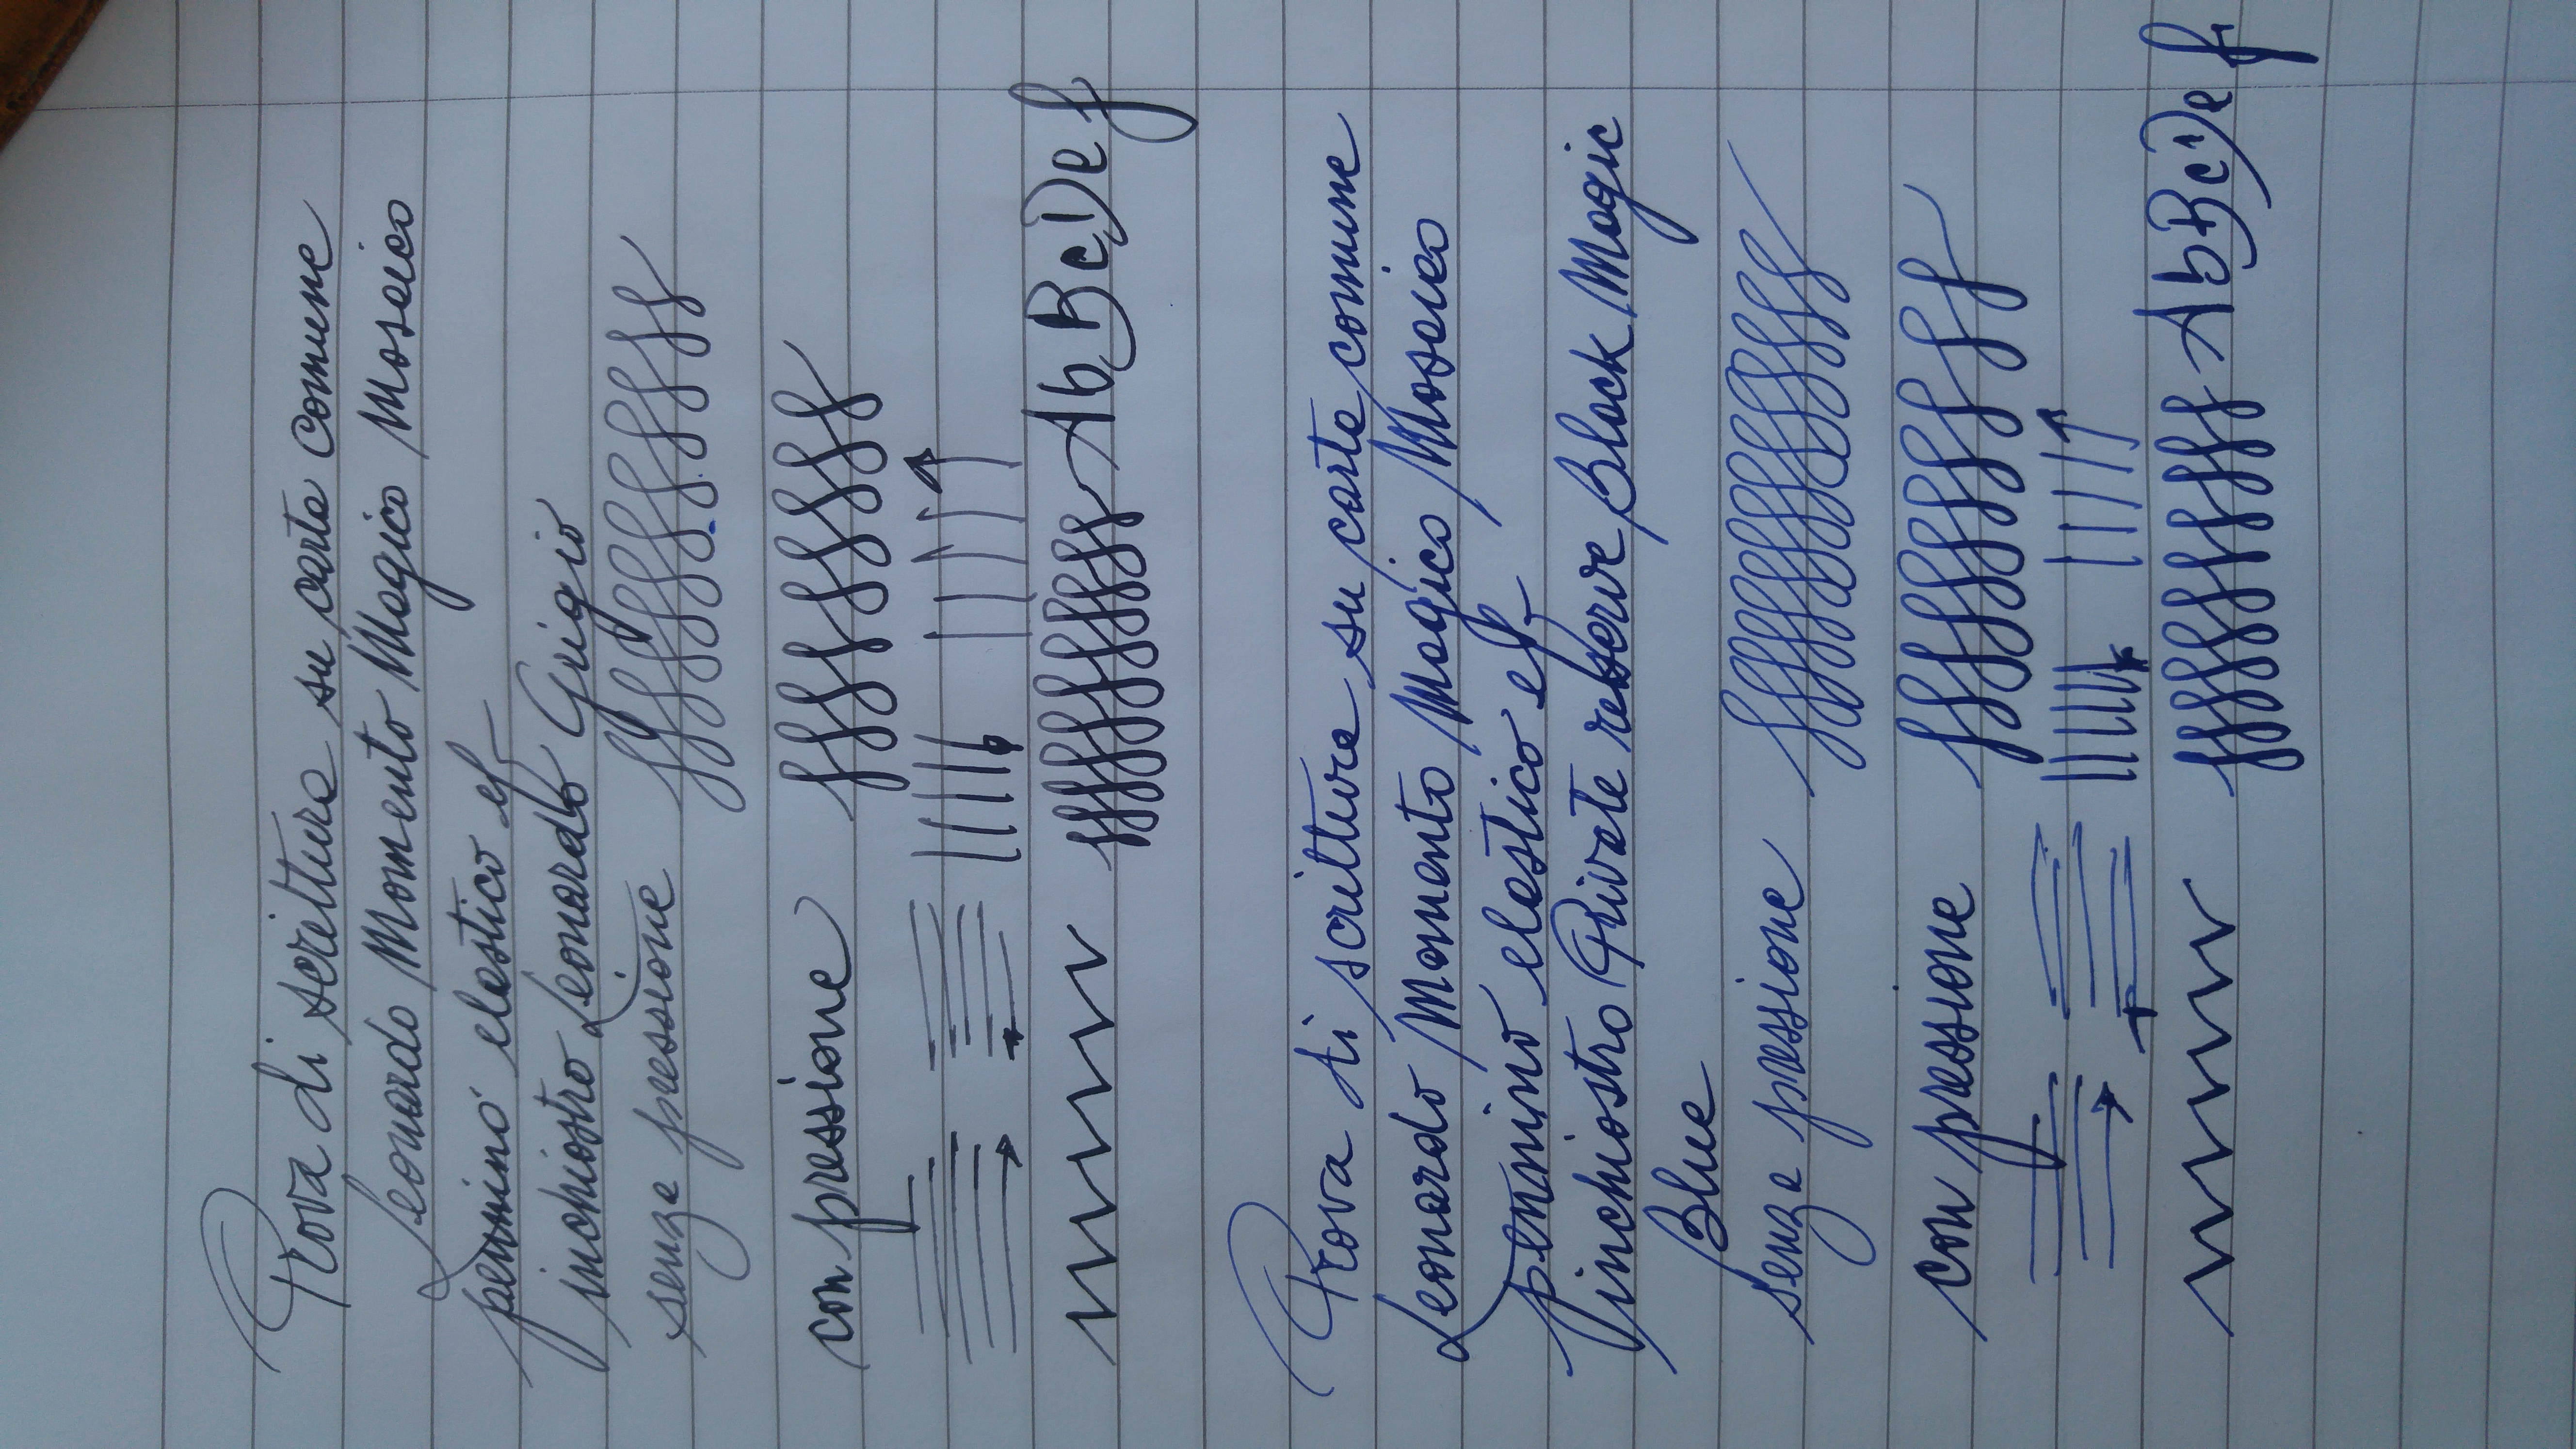 Prova di scrittura su carta comune
Leonardo Momento Magico Mosaico
pennino elastico ef
inchiostro Leonardo Grigio
senza pressione
con pressione
AbBcDef
Prova di scrittura su carta comune
Leonardo Momento Magico Mosaico
pennino elastico ef
inchiostro Private reserve Black Magic
Blue
senza pressione
con pressione
AbBcDef